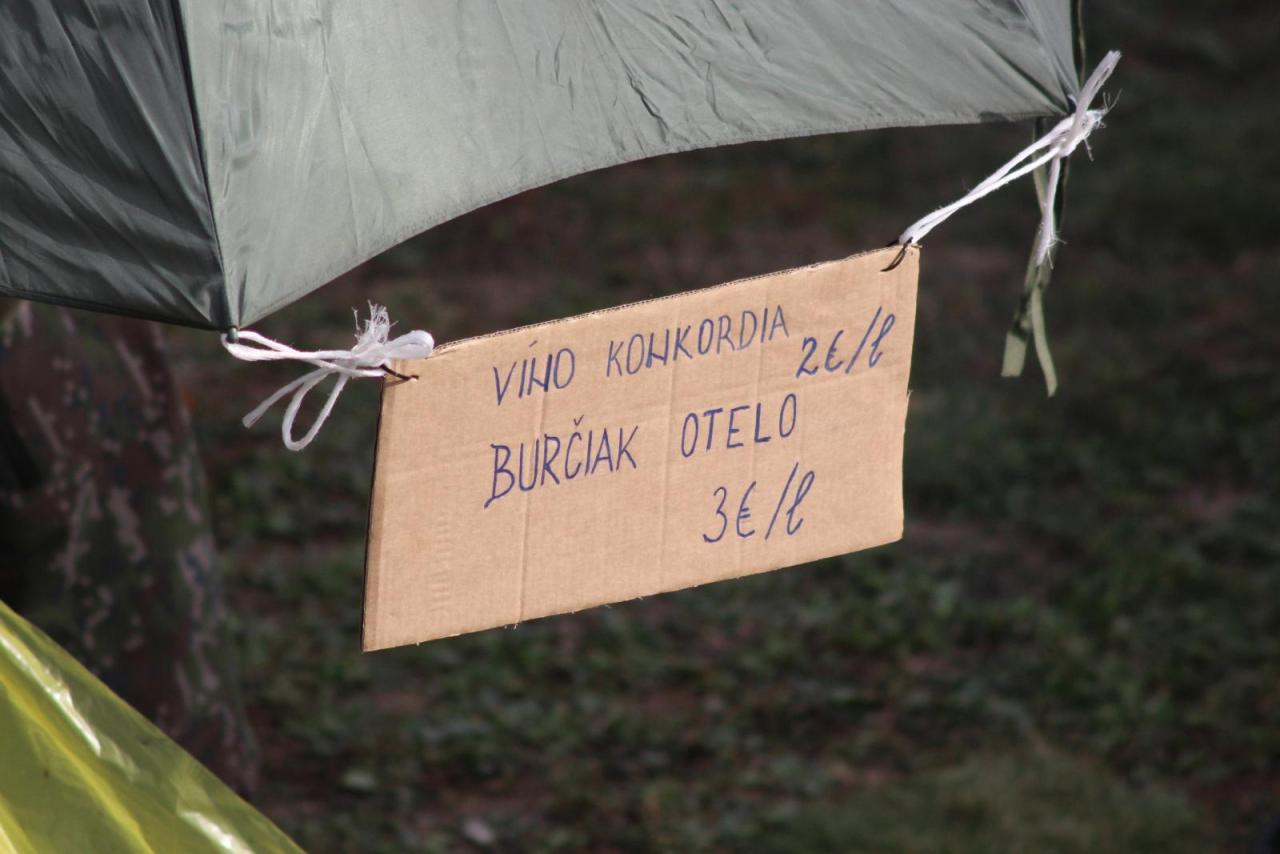 VÍNO KONKORDIA
2€/l
BURČIAK OTELO
3€/l